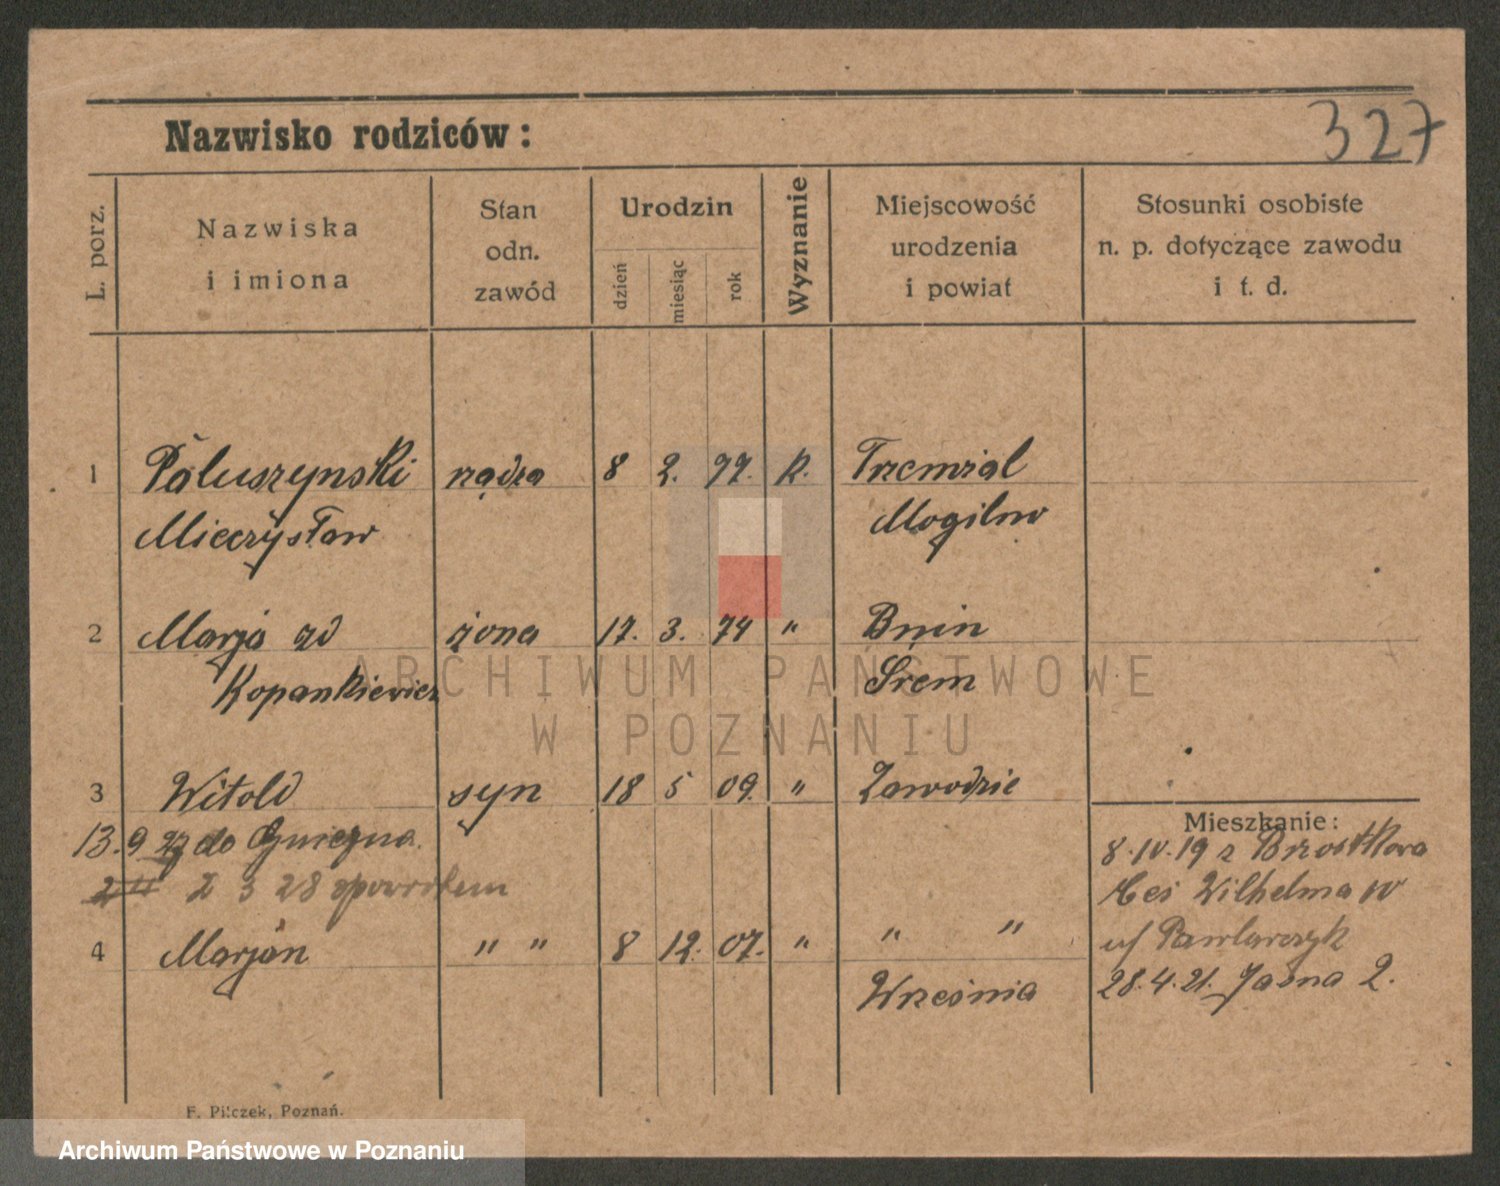 327
Nazwisko rodziców:
L. porz.
Nazwiska
i imiona
Stan
odn.
zawód
Urodzin
dzień
miesiąc
rok
Wyznanie
Miejscowość
urodzenia
i powiat
Stosunki osobiste
n. p. dotyczące zawodu
i t. d.
1 Paluszynski rządza 8 2. 77. k. Trzemżal
Mieczysław Mogilno
2 Marja zd żona 17. 3. 74 " Bnin
Kopankiewicz Śrem
ARCHIWUM PAŃSTWOWE
W POZNANIU
3 Witold syn 18 5 09. " Zawodzie
Mieszkanie:
13.9 27 do Gniezna.
8.IV.19 z Brzostkowa
2 3 28 spowrotem
Wilhelma IV
u/ Pawlarczyk
4 Marjan " " 8 12. 07. " " "
28.4.21. Jasna 2.
Września
F. Pilczek, Poznań.
Archiwum Państwowe w Poznaniu